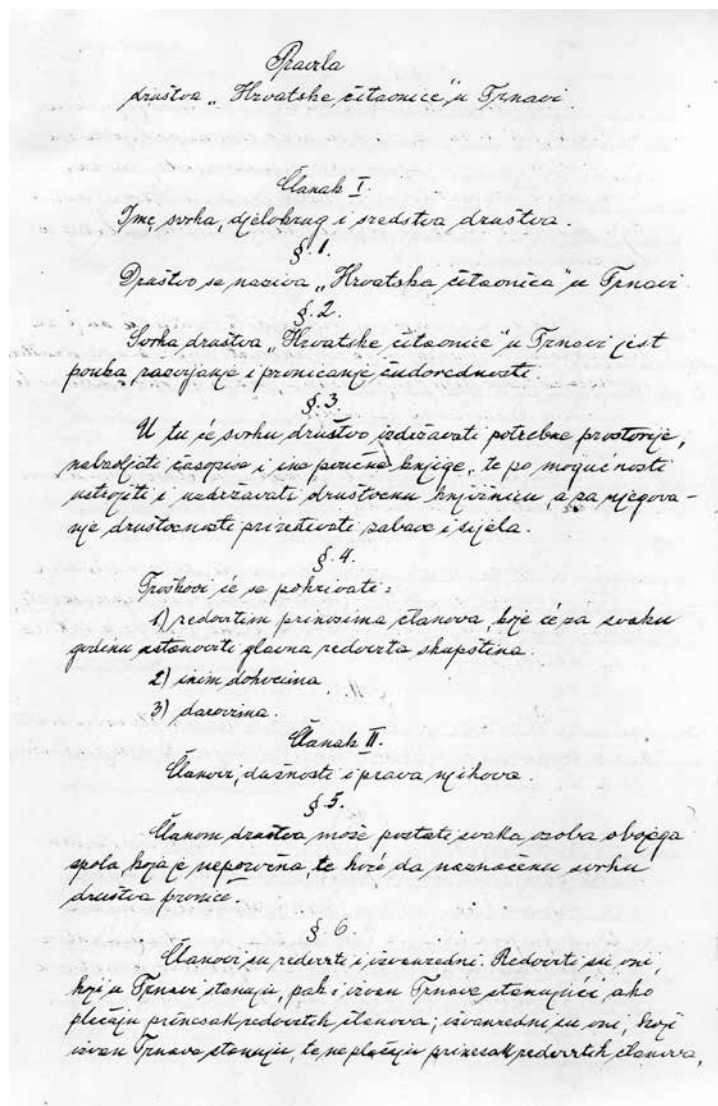 Pravila
društva „Hrvatske čitaonice" u Trnavi.
Članak I.
Ime, svrha, djelokrug i sredstva društva.
§. 1.
Društvo se naziva „Hrvatska čitaonica" u Trnavi.
§. 2.
Svrha društva „Hrvatske čitaonice" u Trnavi jest
pouka, razvijanje i promicanje ćudorednosti.
§. 3.
U tu će svrhu društvo izdržavati potrebne prostorije,
nabavljati časopise i ine poučne knjige, te po mogućnosti
ustrojiti i uzdržavati društvenu knjižnicu, a za njegova-
nje društvenosti priređivati zabave i sijela.
§. 4.
Troškovi će se pokrivati:
1) redovitim prinosima članova, koje će za svaku
godinu ustanoviti glavna redovita skupština.
2) inim dohocima
3) darovima.
Članak II.
Članovi, dužnosti i prava njihova.
§ 5.
Članom društva može postati svaka osoba obojega
spola, koja je neporočna, te hoće da naznačenu svrhu
društva promiče.
§ 6.
Članovi su redoviti i izvanredni. Redoviti su oni,
koji u Trnavi stanuju, pak i izvan Trnave stanujući ako
plaćaju prinesak redovitih članova; izvanredni su oni, koji
izvan Trnave stanuju, te ne plaćaju prinesak redovitih članova,